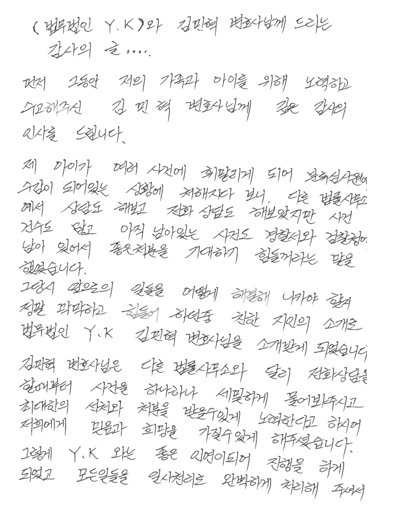 (법무법인 Y.K)와 김민혁 변호사님께 드리는
감사의 글....
먼저 그동안 저의 가족과 아이를 위해 노력하고
수고해주신 김민혁 변호사님께 깊은 감사의
인사를 드립니다.
제 아이가 여러 사건에 휘말리게 되어
수감이 되어있는 상황에 처해지다 보니, 다른 법률사무소
에서 상담도 해보고 전화상담도 해보았지만 사건
건수도 많고 아직 남아있는 사건도 경찰서와 검찰청에
남아 있어서 좋은처분을 기대하기 힘들꺼라는 말을
했었습니다.
그당시 앞으로의 일들을 어떻게 해결해 나가야 할지
정말 막막하고 힘들어 하던중 친한 지인의 소개로
법무법인 Y.K 김민혁 변호사님을 소개받게 되었습니다
김민혁 변호사님은 다른 법률사무소와 달리 전화상담을
할때부터 사건을 하나하나 세밀하게 물어봐주시고
최대한의 선처와 처분을 받을수있게 노력한다고 하시어
저희에게 믿음과 희망을 가질수있게 해주셨습니다.
그렇게 Y.K 와는 좋은 인연이되어 진행을 하게
되었고 모든일들을 일사천리로 완벽하게 처리해 주셔서